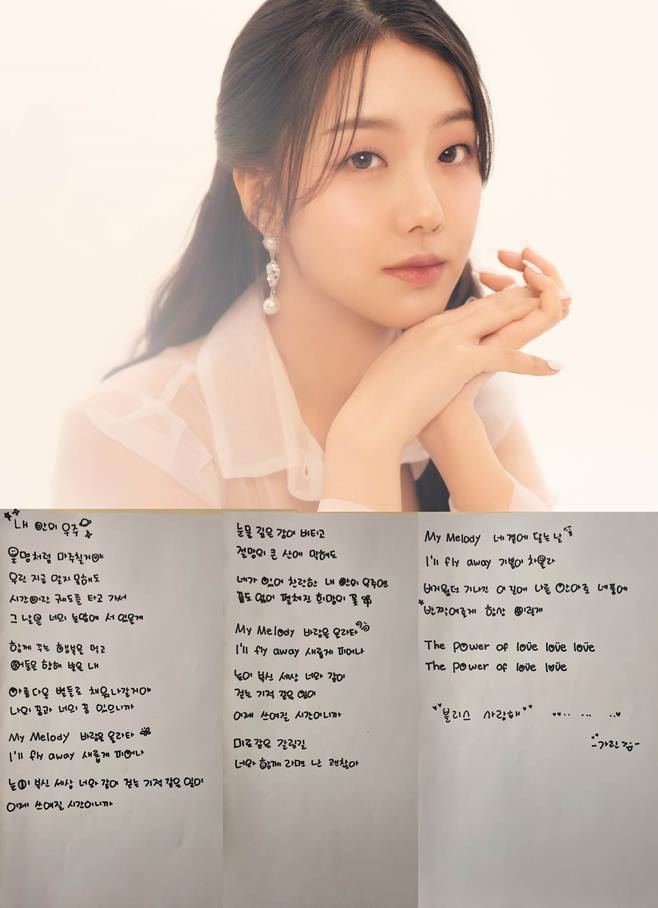 내 안의 우주
운명처럼 마주칠거야
우린 지금 알지 못해도
시간이란 궤도를 타고 가서
그 날엔 너의 눈앞에 서 있을게
함께 꾸는 행복을 먹고
어둠을 향해 뱉은 내
아름다운 별들로 채워나갈거야
나의 꿈과 너의 꿈 있으니까
My Melody 바람을 올라타
I'll fly away 새롭게 피어나
눈이 부신 세상 너와 같이 걷는 기적 같은 일이
이제 쓰여질 시간이니까
눈물 짙은 밤이 버티고
절망의 큰 산에 막혀도
네가 있어 찬란한 내 안의 우주엔
끝도 없이 펼쳐진 희망의 꽃
My Melody 바람을 올라타
I'll fly away 새롭게 피어나
눈이 부신 세상 너와 같이
걷는 기적 같은 일이
이제 쓰여질 시간이니까
미로같은 갈림길
너와 함께 라면 난 괜찮아
My Melody 네 곁에 닿는 날
I'll fly away 기쁨이 차올라
버거웠던 기나긴 이 길에 나를 안아준 네 품에
반짝여줘 항상 이렇게
The power of love love love
The power of love love
블리스 사랑해
-가린 김-